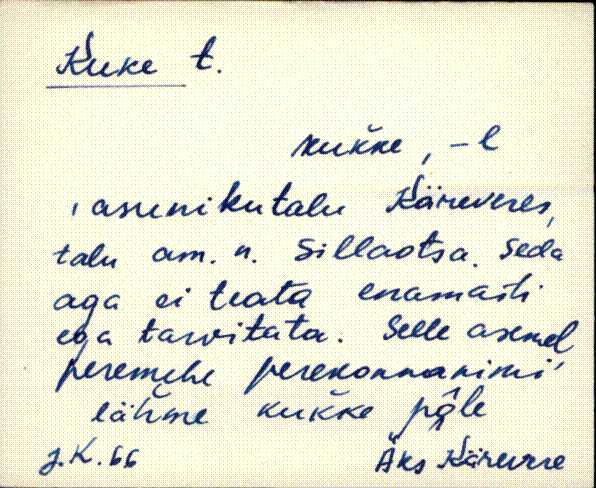 Kuke t.
kukke, -l
, asunikutalu Käreveres,
talu am. n. Sillaotsa. Seda
aga ei teata enamasti
ega tarvitata. Selle asemel
peremehe perekonnanimi,
lähme kukke päle
J.K. 66 Äks Kärevere